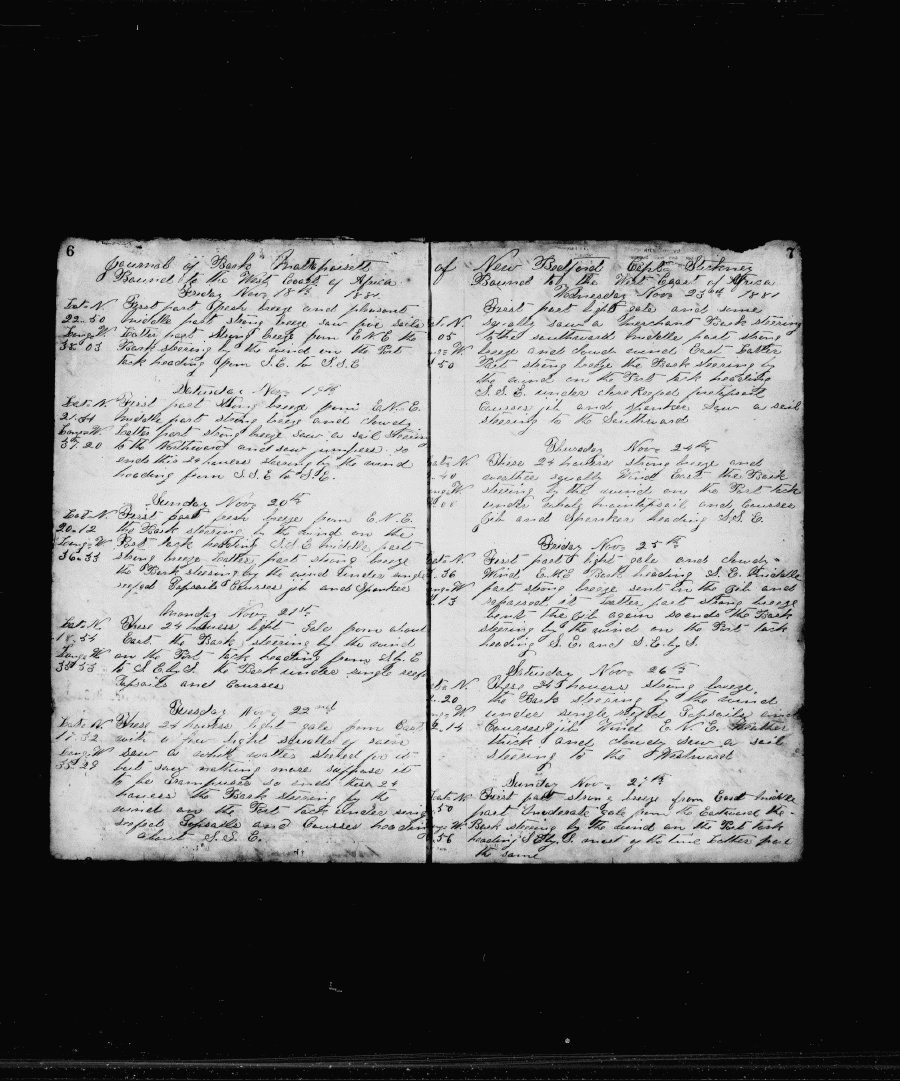 6
Journal of Bark Mattapoisett
Bound to the West Coast of Africa
Friday Nov 18th 1881
Lat. N. First part fresh breeze and pleasant
22-50 middle part strong breeze saw five sails
Long. W Latter part strong breeze from E.N.E the
35-03 Bark steering by the wind on the Port
tack heading from S.E. to S.S.E
Saturday Nov. 19th
Lat. N. First part strong breeze from E.N.E.
middle part strong breeze and cloudy
Long. W. Latter part strong breeze saw a sail steering
37-20 to the Northward and saw jumpers so
ends this 24 hours steering by the wind
heading from S.S.E to S.E.
Sunday Nov 20th
Lat. N. First part fresh breeze from E.N.E.
20-12 the Bark steering by the wind on the
Long. W Port tack heading S.S.E middle part
36-33 strong breeze Latter part strong breeze
the Bark steering by the wind under single
reefed Topsails Courses jib and Spanker
Monday Nov 21st
Lat. N. These 24 houers light gale from about
East the Bark steering by the wind
Long. W on the Port tack heading from S.by.E
to S.E.by.S. the Bark under single reef
Topsails and Courses
Tuesday Nov 22nd
Lat. N. These 24 houers light gale from East
with a few light squalls of rain
Long. W saw a white watter sheked for it
35-29 but saw nothing more suppose it
to be so ends these 24
houers the Bark steering by the
wind on the Port tack under sing
reefed Topsails and Courses heading
about S.S.E.
7
of New Bedford Capt. Stickney
Bound to the West Coast of Africa
Wednesday Nov. 23rd 1881
First part light gale and some
N. squally saw a Merchant Bark steering
05 to the southward middle part strong
W breeze and cloudy wind East Latter
50 Part strong breeze the Bark steering by
the wind on the Port tack heading
S.S.E. under close Reefed
Courses jib and spanker saw a sail
steering to the Southward
Thursday Nov. 24th
N. These 24 houers strong breeze and
40 weather squally Wind East the Bark
W. steering by the wind on the Port tack
under whole maintopsail and Courses
jib and Spanker heading S.S.E.
Friday Nov 25th
N. First part light gale and cloudy
36 Wind E.N.E Bark heading S.E. Middle
W. part strong breeze sent in the jib and
13 repaired it Latter part strong breeze
bent the jib again so ends the Bark
steering by the wind on the Port tack
heading S.E. and S.E.by.S.
Saturday Nov 26th
N. These 24 houers strong breeze
20 the Bark steering by the wind
W. under single reefed Topsails and
14 Courses jib Wind E.N.E. Weather
thick and cloudy Saw a sail
steering to the Westward
Sunday Nov. 27th
N. First part strong breeze from East middle
50 part moderate gale from the Eastward the
W. Bark steering by the wind on the Port tack
56 heading S.by.S. most of the time Latter part
the same